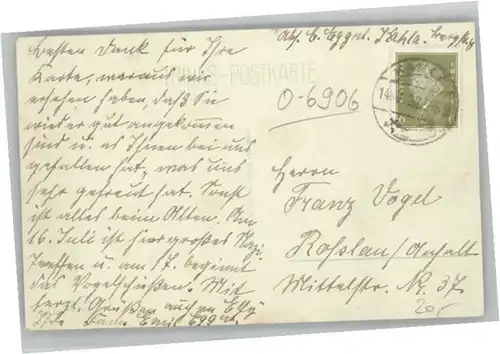 Abs. E. Eggert, Kahla,
Besten Dank für Ihre
Karte, woraus wir
ersehen haben, daß Sie
wieder gut angekommen
sind u. es Ihnen bei uns
gefallen hat, was uns
sehr gefreut hat. Sonst
ist alles beim Alten. Am
16. Juli ist hier großes Nazi
Treffen u. am 17. beginnt
das Vogelschießen. Mit
herzl. Grüßen auch an Elly
Ihre Fam. Emil Eggert.
-POSTKARTE
0-6906
Herrn
Franz Vogel
Roßlau/Anhalt
Mittelstr. Nr. 37
20,-